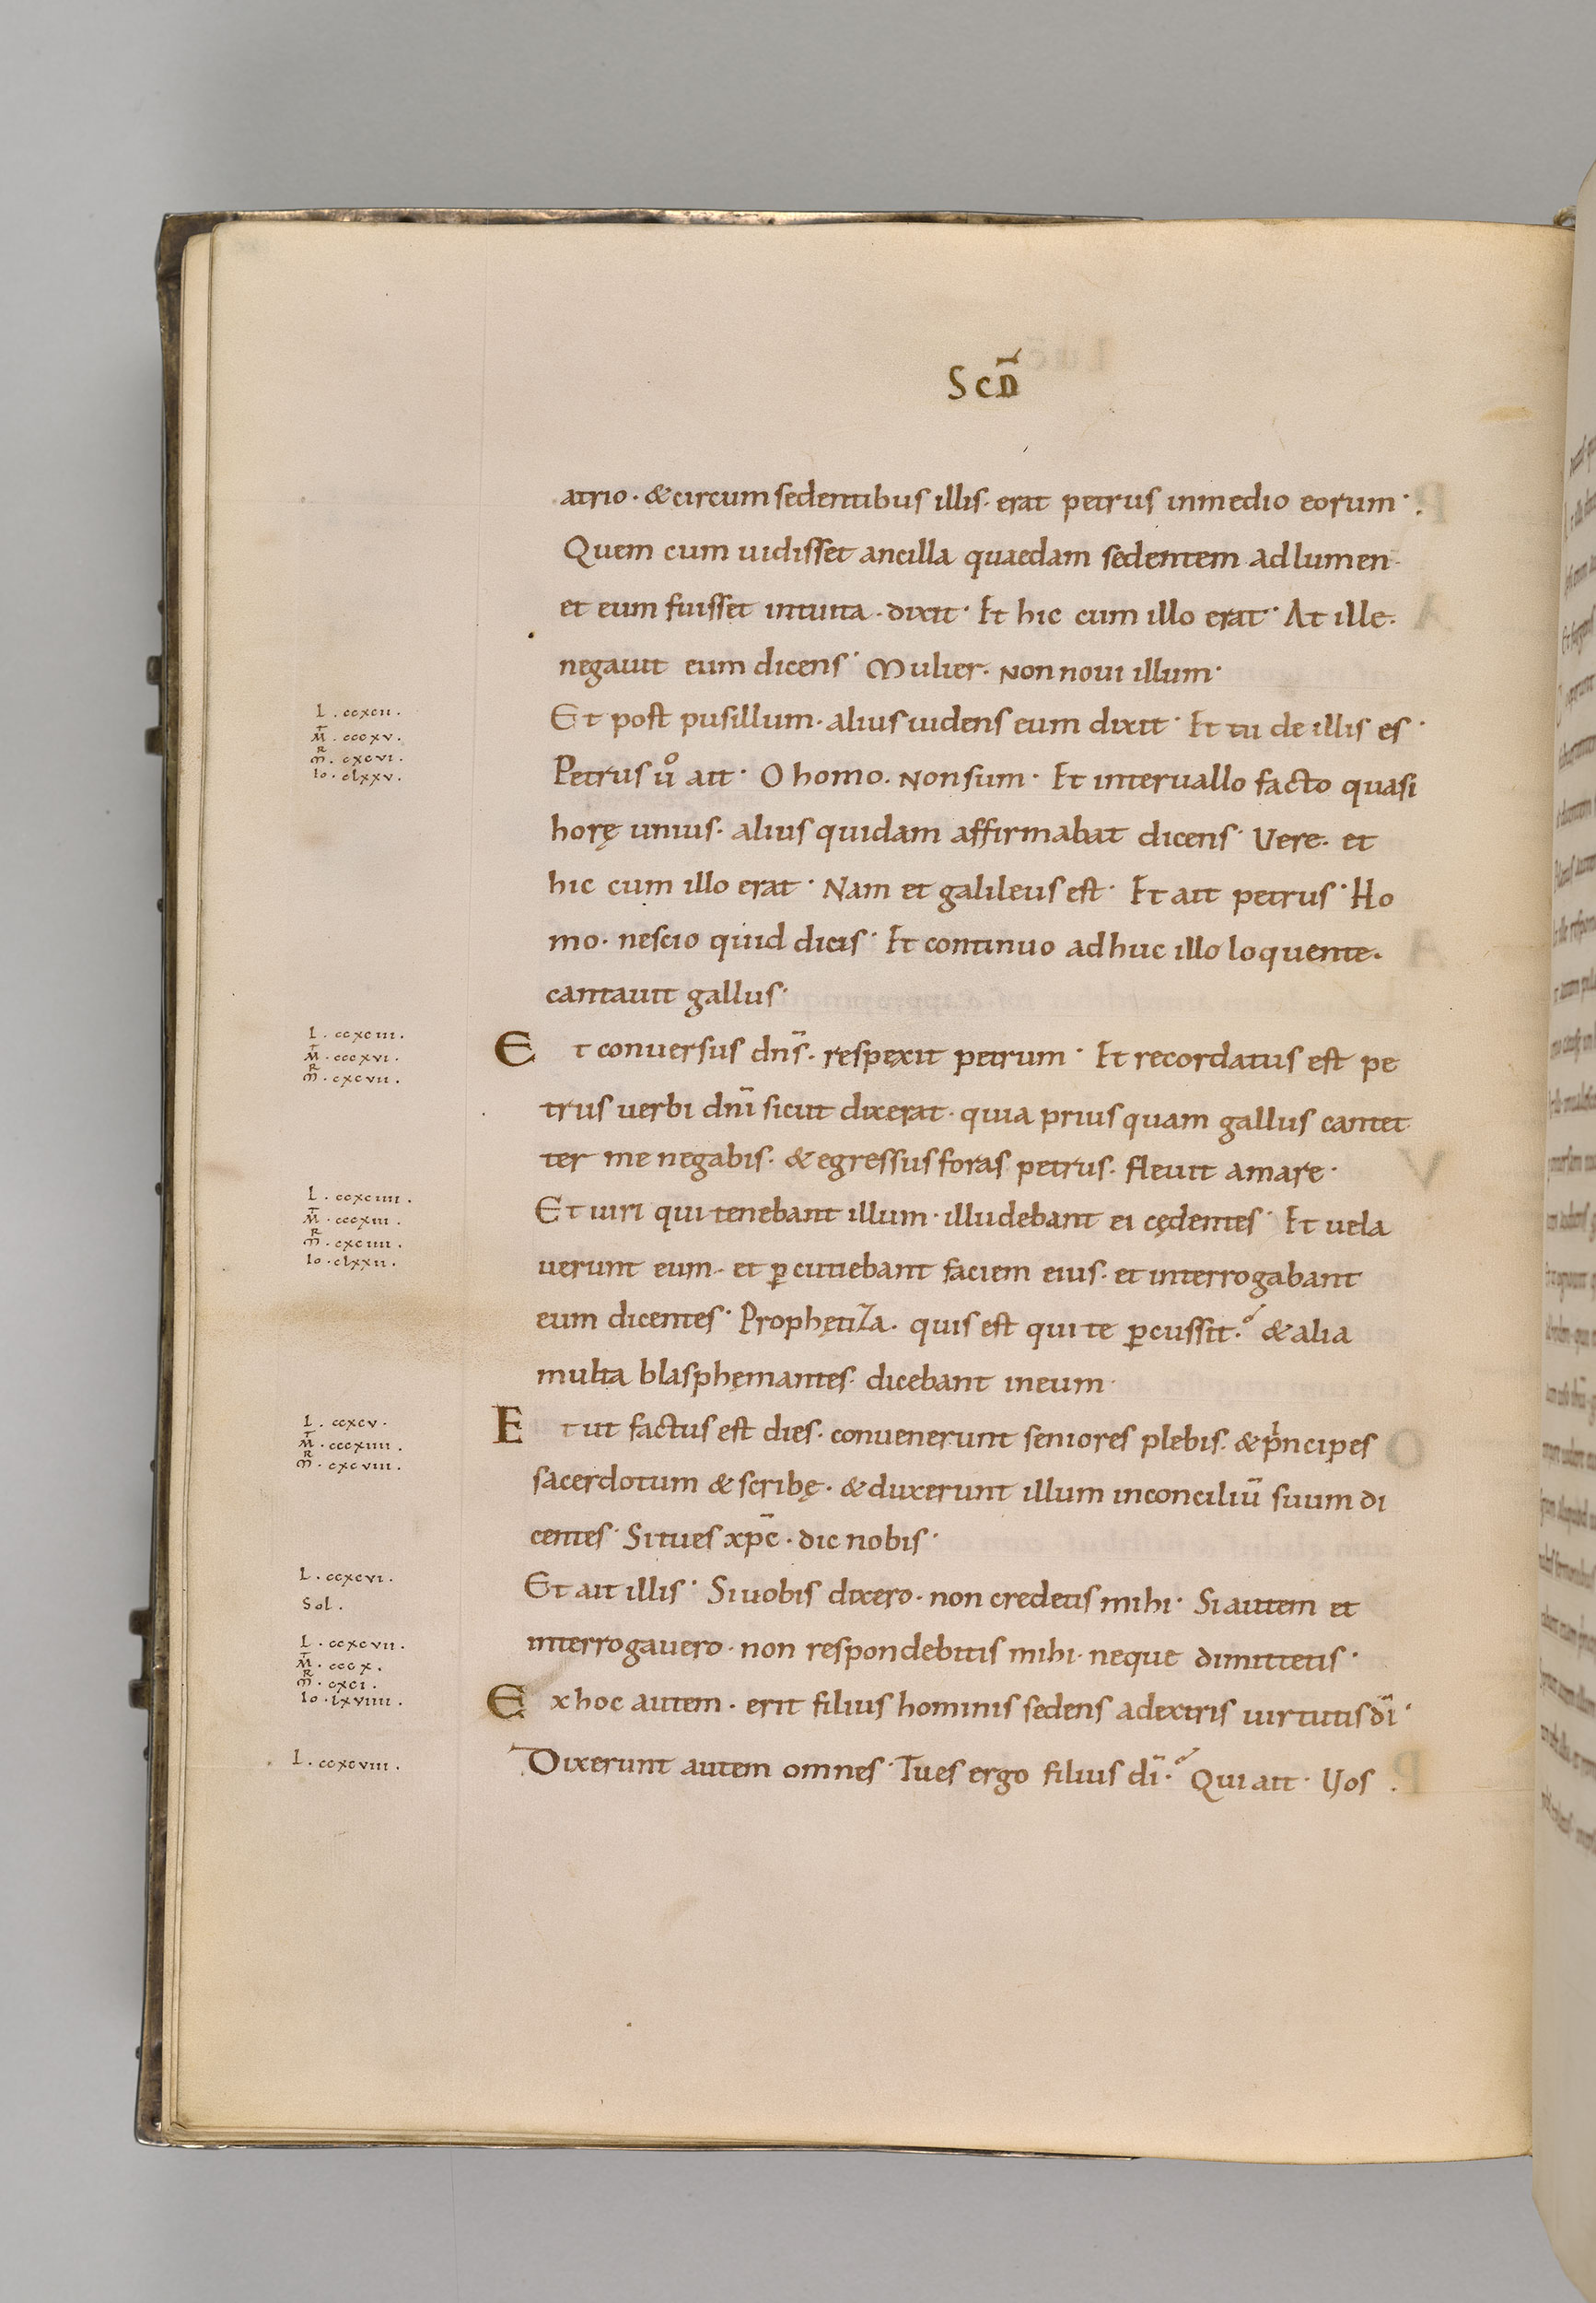 Scd̄
atrio · & circum sedentibus illis · erat petrus inmedio eorum ·
Quem cum uidisset ancilla quaedam sedentem adlumen ·
et eum fuisset intuita · dixit · Et hic cum illo erat · At ille ·
negauit eum dicens · Mulier · Non noui illum ·
L . ccxcii .
M̄ . cccxv .
M . cxcvi .
Io . clxxv .
Et post pusillum · alius uidens eum dixit · Et tu de illis es ·
Petrus uͦ ait · O homo · Non sum · Et interuallo facto quasi
horę unius · alius quidam affirmabat dicens · Vere · et
hic cum illo erat · Nam et galileus est · Et ait petrus · Ho
mo · nescio quid dicis · Et continuo adhuc illo loquente ·
cantauit gallus ·
L . ccxciii .
M̄ . cccxvi .
M . cxcvii .
Et conuersus dn̄s · respexit petrum · Et recordatus est pe
trus uerbi dn̄i sicut dixerat · quia prius quam gallus cantet
ter me negabis · & egressus foras petrus · fleuit amare ·
L . ccxciiii .
M̄ . cccxiii .
M . cxciiii .
Io . clxxii .
Et uiri qui tenebant illum · illudebant ei cędentes · Et uela
uerunt eum · et ꝑcutiebant faciem eius · et interrogabant
eum dicentes · Prophętiza · quis est qui te ꝑcussit ? & alia
multa blasphęmantes dicebant ineum ·
L . ccxcv .
M̄ . cccxiiii .
M . cxcviii .
Et ut factus est dies · conuenerunt seniores plebis · & pͥncipes
sacerdotum & scribę · & duxerunt illum inconciliū suum di
centes · Situes xp̄c · dic nobis ·
L . ccxcvi .
Sol .
Et ait illis · Siuobis dixero · non credetis mihi · Siautem et
interrogauero · non respondebitis mihi · neque dimittetis ·
L . ccxcvii .
M̄ . cccx .
M . cxci .
Io . lxviiii .
Ex hoc autem · erit filius hominis sedens adextris uirtutis dī ·
L . ccxcviii .
Dixerunt autem omnes · Tues ergo filius dī ? Qui ait · Vos